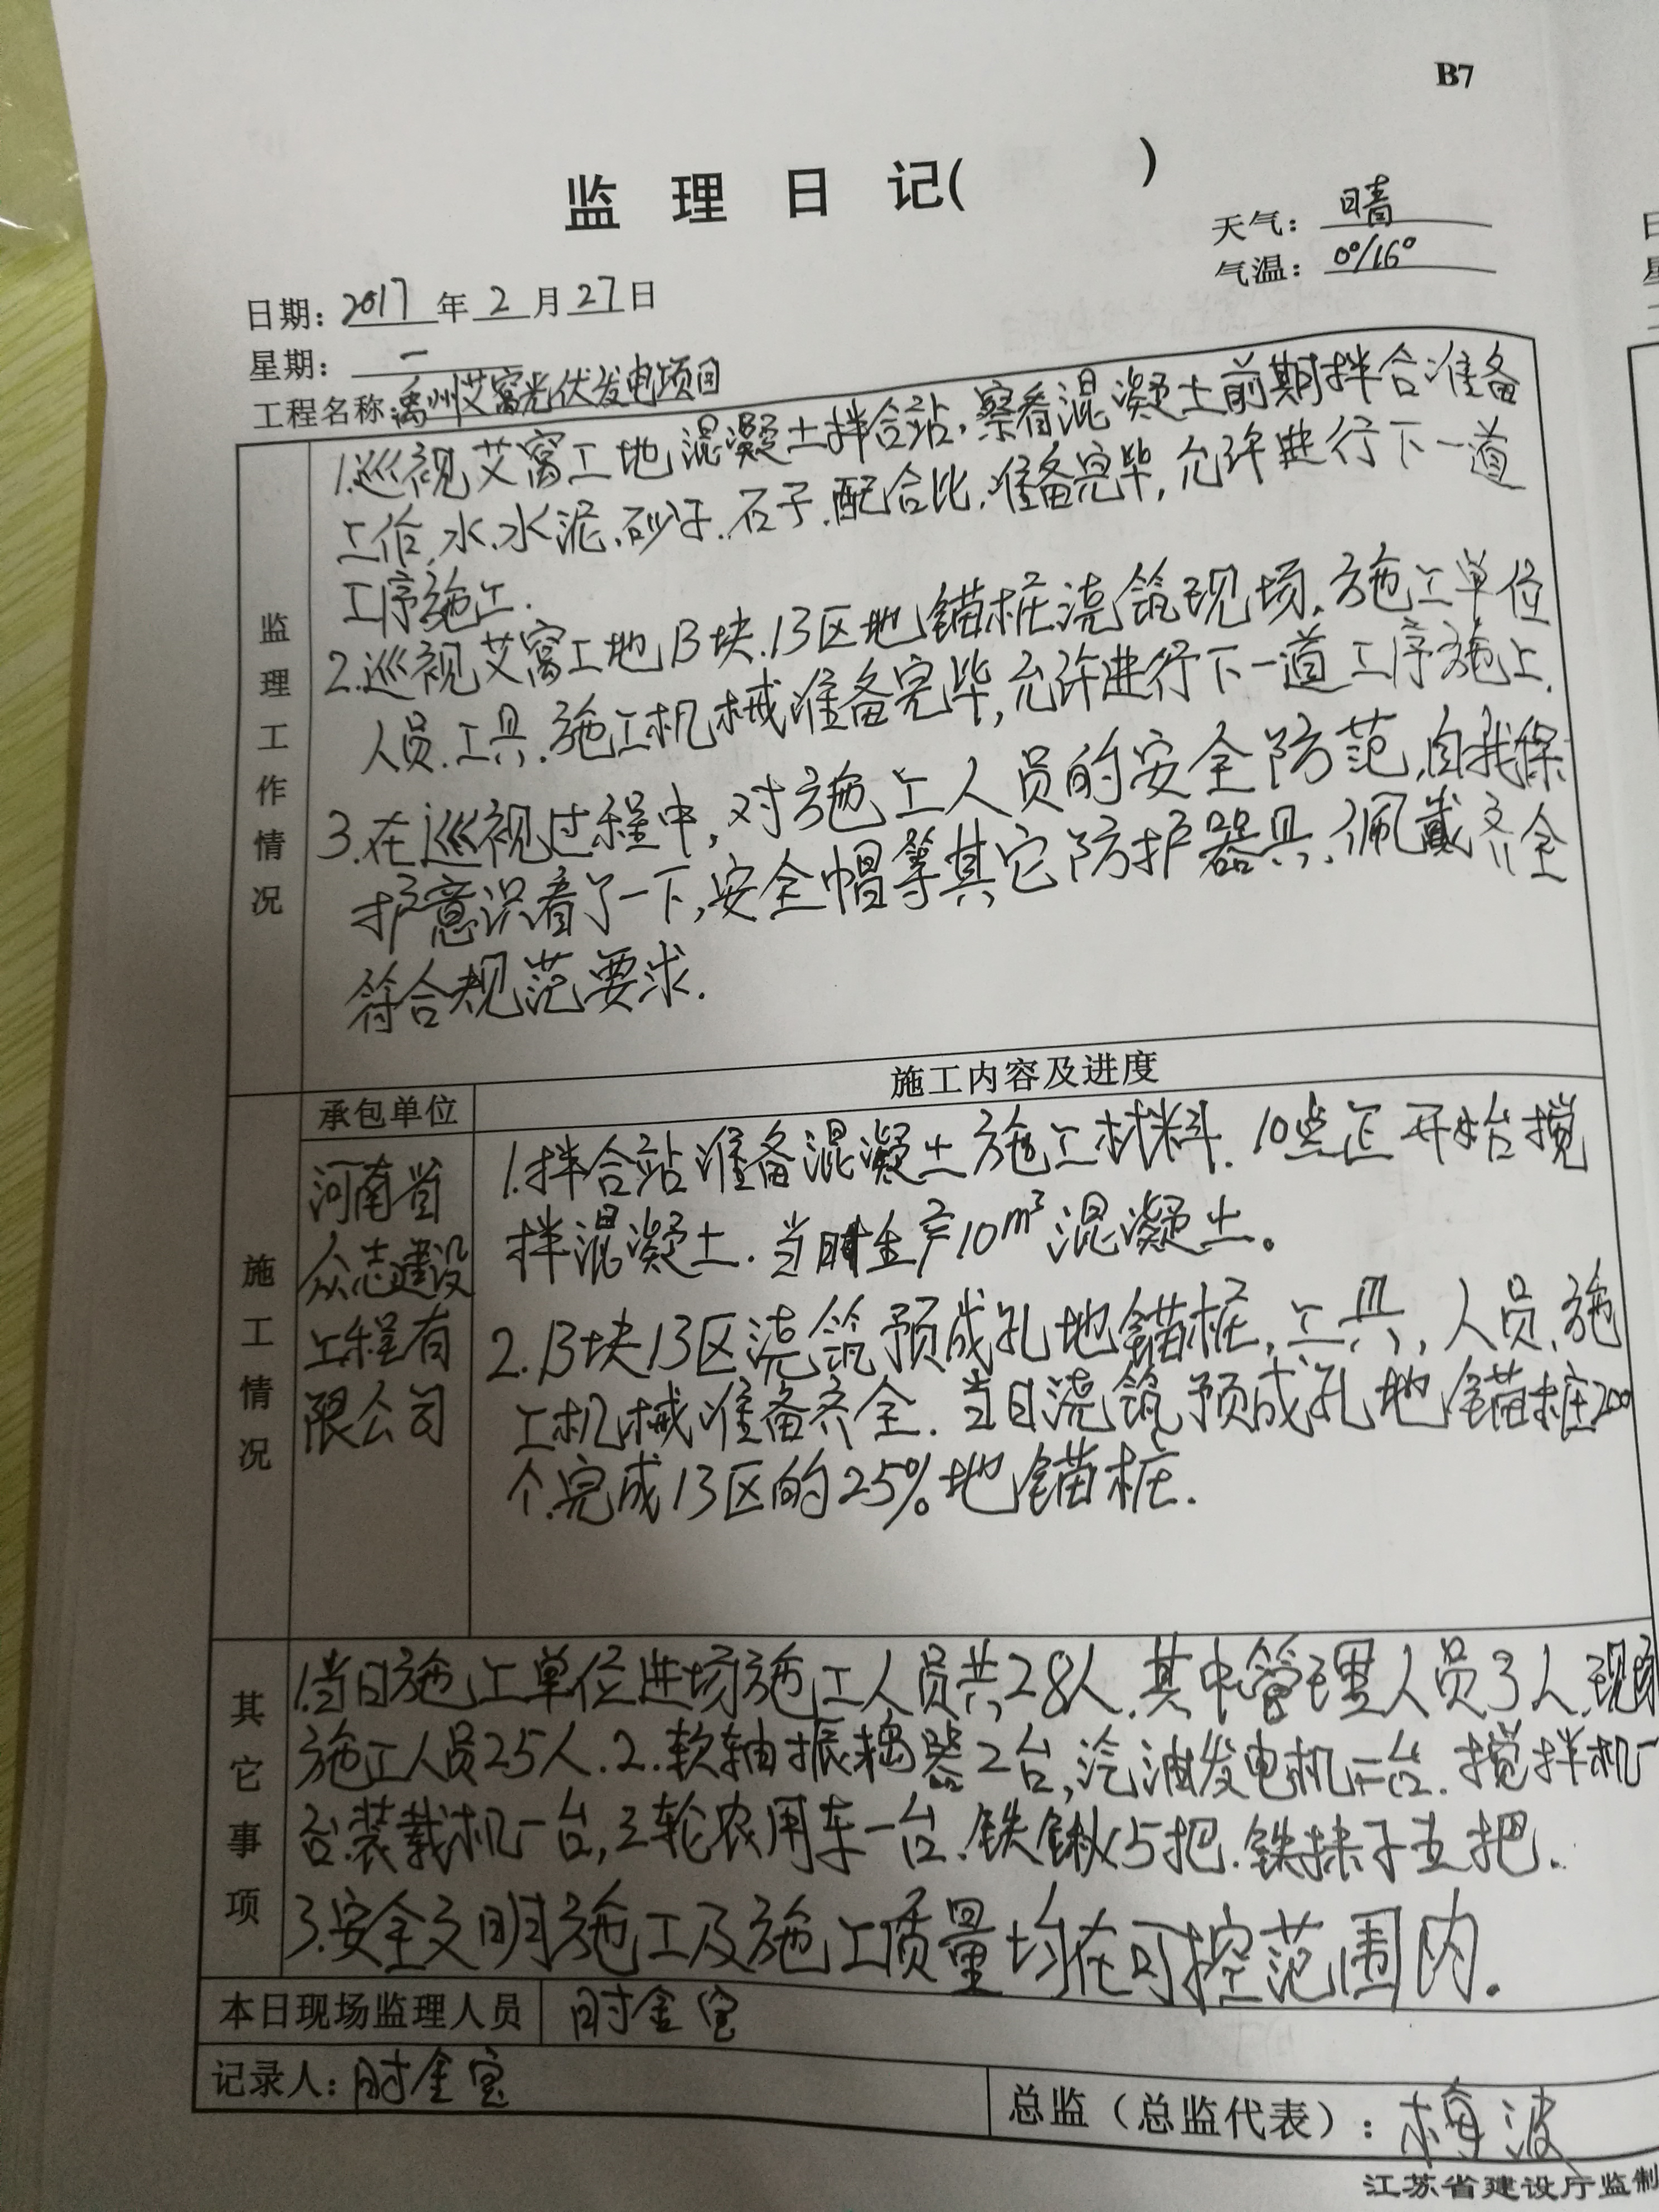 B7
监理日记(        )
天气：晴
气温：0°/16°
日期：2017年2月27日
星期：一
工程名称：禹州艾窝光伏发电项目
监理工作情况
1.巡视艾窝工地混凝土拌合站，察看混凝土前期拌合准备
工作，水、水泥、砂子、石子、配合比，准备完毕，允许进行下一道
工序施工.
2.巡视艾窝工地B块.13区地锚桩浇筑现场.施工单位
人员.工具.施工机械准备完毕,允许进行下一道工序施工.
3.在巡视过程中,对施工人员的安全防范,自我保
护意识看了一下,安全帽等其它防护器具,佩戴齐全
符合规范要求.
施工情况
承包单位
施工内容及进度
河南省
众志建设
工程有
限公司
1.拌合站准备混凝土施工材料.10点正开始搅
拌混凝土.当时生产10m³混凝土。
2.B块13区浇筑预成孔地锚桩,工具,人员.施
工机械准备齐全.当日浇筑预成孔地锚桩200
个.完成13区的25%地锚桩.
其它事项
1.当日施工单位进场施工人员共28人.其中管理人员3人.现场
施工人员25人.2.软轴振捣器2台,汽油发电机一台.搅拌机一
台.装载机一台,三轮农用车一台.铁锹15把.铁抹子五把.
3.安全文明施工及施工质量均在可控范围内.
本日现场监理人员 时金宝
记录人：时金宝
总监（总监代表）：梅波
江苏省建设厅监制